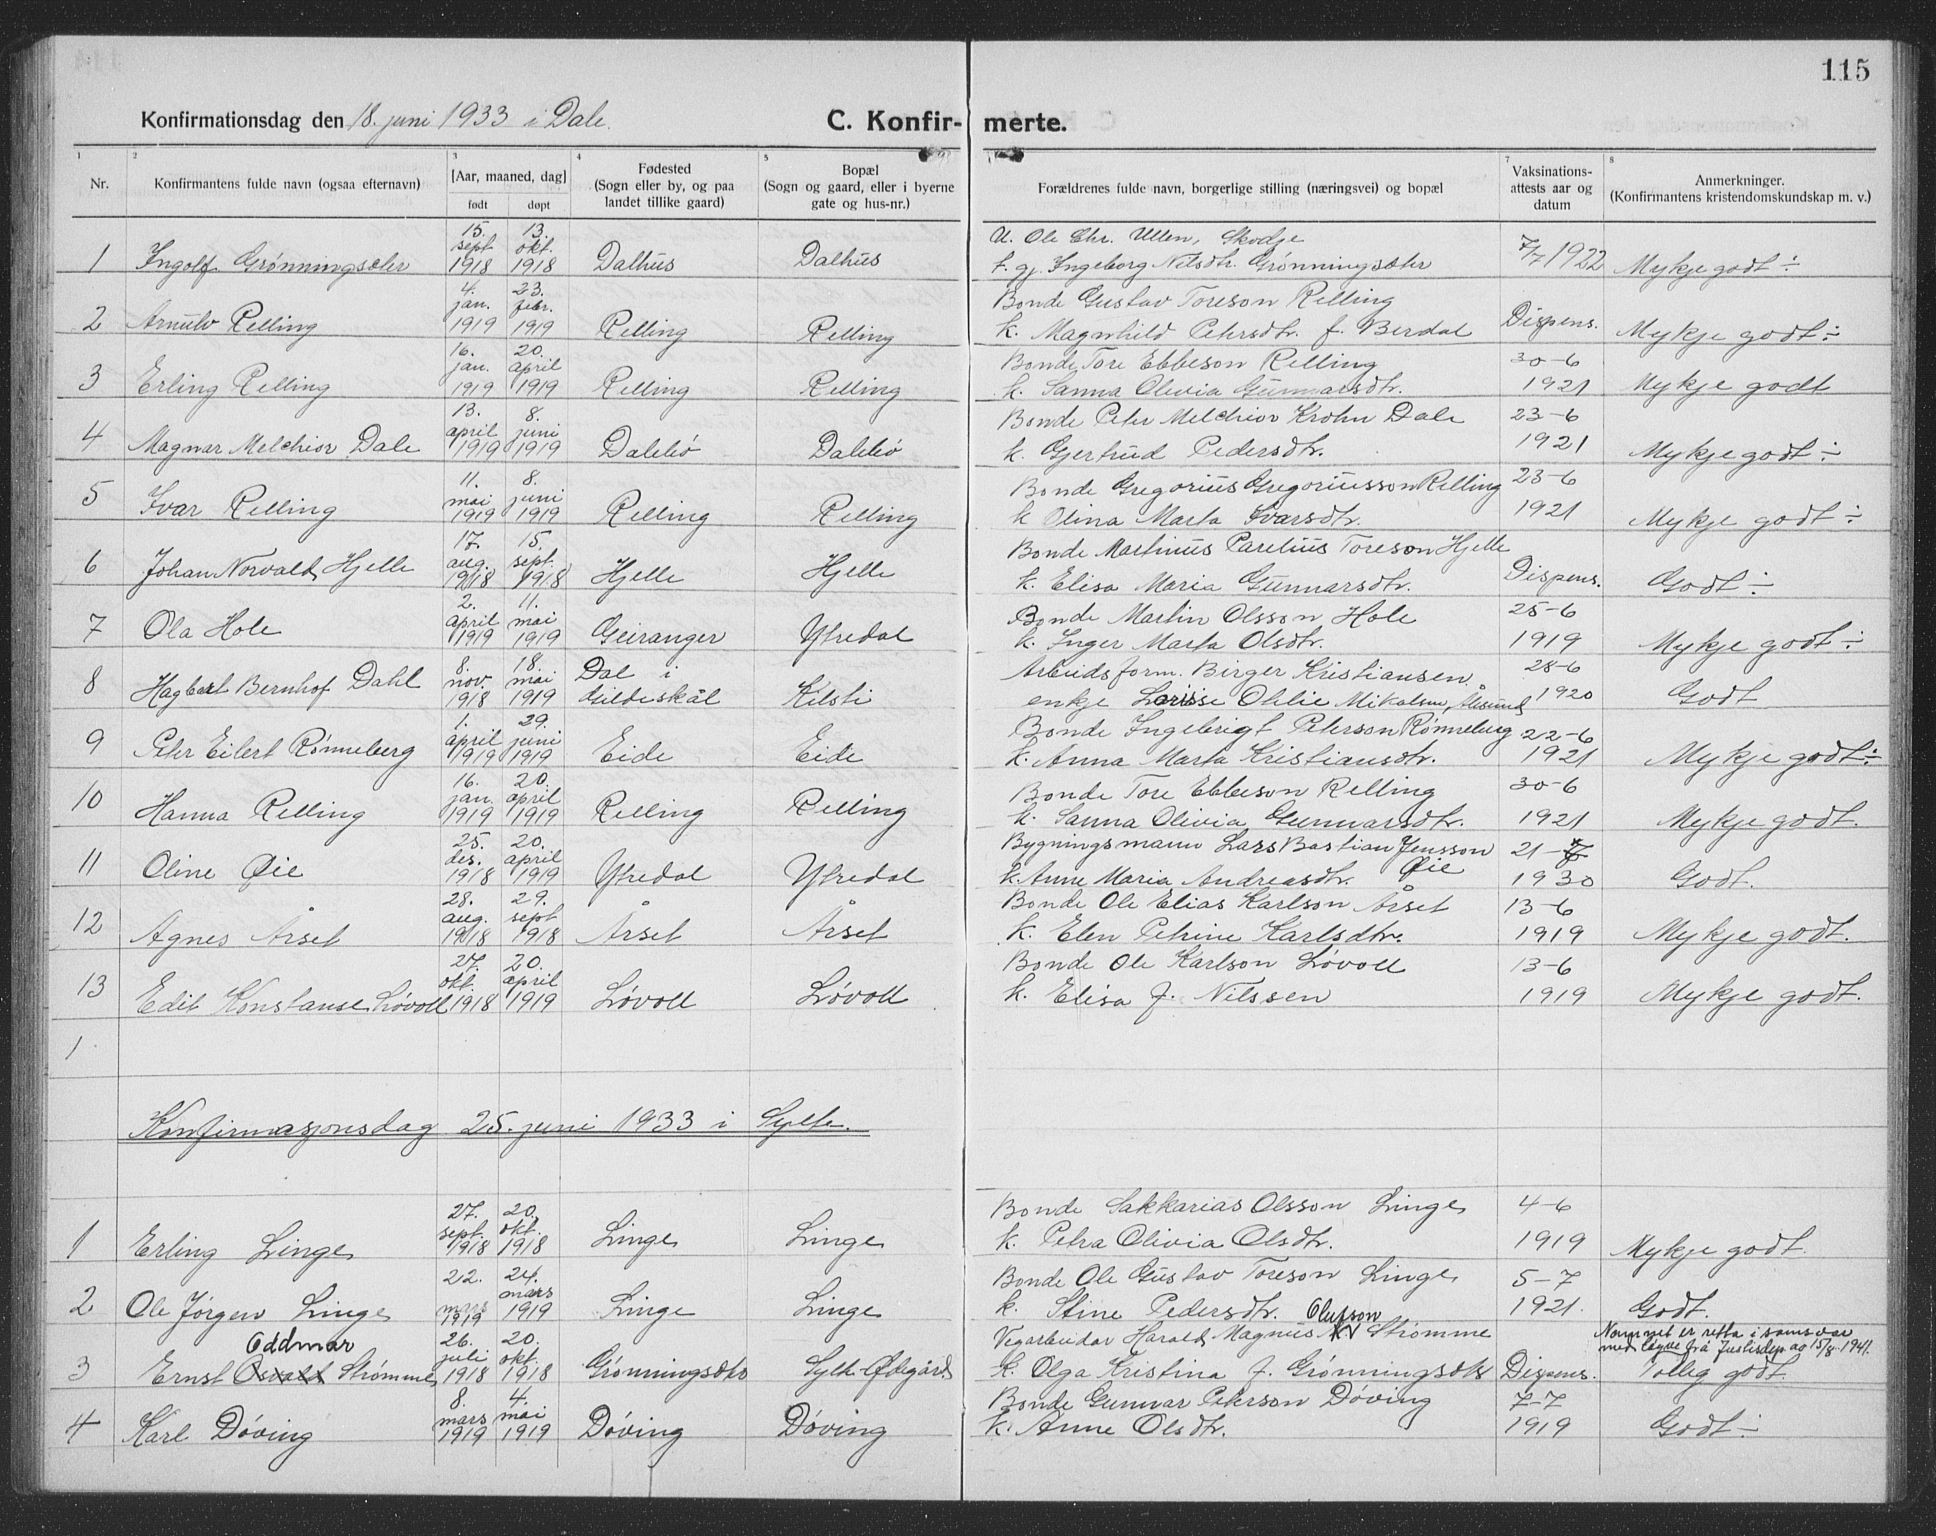 115
Konfirmationsdag den 18. juni 1933 i Dale.
C. Konfirmerte.
1 2 3 4 5 7 8
Nr.
Konfirmantens fulde navn (ogsaa efternavn)
[Aar, maaned, dag]
født døpt
Fødested
(Sogn eller by, og paa
landet tillike gaard)
Bopæl
(Sogn og gaard, eller i byerne
gate og hus-nr.)
Forældrenes fulde navn, borgerlige stilling (næringsvei) og bopæl
Vaksinations-
attests aar og
datum
Anmerkninger.
(Konfirmantens kristendomskundskap m. v.)
15. 13. U. Ole Chr. Ullen, Skodje
sept. okt.
1 Ingolf Grønningsæter 1918 1918 Dalhus Dalhus t. gj. Ingeborg Nilsdtr. Grønningsæter 7/7 1922 Mykje godt ÷
4. 23. Bonde Gustav Toreson Relling
jan. febr.
2 Arnulv Relling 1919 1919 Relling Relling k. Magnhild Petersdtr. f. Berdal Dispens. Mykje godt ÷
16. 20. Bonde Tore Ebbeson Relling 30-6
jan. april
3 Erling Relling 1919 1919 Relling Relling k. Sanna Olivia Gunnarsdtr. 1921 Mykje godt
13. 8. Bonde Peter Melchior Krohn Dale 23-6
april juni
4 Magnar Melchior Dale 1919 1919 Dalebø Dalebø k. Gjertrud Pedersdtr. 1921 Mykje godt ÷
11. 8. Bonde Gregorius Gregoriusson Relling 23-6
mai juni
5 Ivar Relling 1919 1919 Relling Relling k Olina Marta Ivarsdtr. 1921 Mykje godt ÷
17. 15. Bonde Martinus Parelius Toreson Hjelle
aug. sept.
6 Johan Norvald Hjelle 1918 1918 Hjelle Hjelle k. Elisa Maria Gunnarsdtr. Dispens. Godt ÷
2. 11. Bonde Martin Olsson Hole 25-6
april mai
7 Ola Hole 1919 1919 Geiranger Ytredal k. Inger Marta Olsdtr. 1919 Mykje godt ÷
8. 18. Dal i Arbeidsform. Birger Kristiansen 28-6
nov. mai
8 Hagbart Bernhof Dahl 1918 1919 Gildeskål Kilsti enkje Lovise Othlie Mikalsen, Ålesund 1920 Godt
1. 29. Bonde Ingebrigt Peterson Rønneberg 22-6
april juni
9 Peter Eilert Rønneberg 1919 1919 Eide Eide k. Anna Marta Kristiansdtr. 1921 Mykje godt ÷
16. 20. Bonde Tore Ebbeson Relling 30-6
jan. april
10 Hanna Relling 1919 1919 Relling Relling k. Sanna Olivia Gunnarsdtr. 1921 Mykje godt.
25. 20. Bygningsmann Lars Bastian Jensson 21-7
des. april Øie
11 Oline Øie 1918 1919 Ytredal Ytredal k. Anne Maria Andreasdtr. 1930 Godt.
28. 29. Bonde Ole Elias Karlson Årset 13-6
aug. sept
12 Agnes Årset 1918 1918 Årset Årset k. Elen Petrine Karlsdtr. 1919 Mykje godt.
27. 20. Bonde Ole Karlson Løvoll 13-6
okt. april
13 Edit Konstanse Løvoll 1918 1919 Løvoll Løvoll k. Elisa f. Nilssen 1919 Mykje godt.
1
Konfirmasjonsdag 25. juni 1933 i Sylte.
27. 20. Bonde Sakkarias Olsson Linge 4-6
sept. okt.
1 Erling Linge 1918 1918 Linge Linge k. Petra Olivia Olsdtr. 1919 Mykje godt.
22. 24. Bonde Ole Gustav Toreson Linge 5-7
mars mars
2 Ole Jørgen Linge 1919 1919 Linge Linge k. Stine Pedersdtr. 1921. Godt.
Oddmar 26. 20. Olufson
Vegarbeidar Harald Magnus Strømme Namnet er retta i samsvar
juli okt. med løyve frå Justisdep. av 15/8. 1941.
3 Ernst Osvalt Strømme 1918 1918 Grønningsæter Sylte Ødegård k. Olga Kristina f. Grønningsæter Dispens. Tolleg godt.
8. 4. Bonde Gunnar Peterson Døving 7-7
mars mai
4 Karl Døving 1919 1919 Døving Døving k. Anne Olsdtr. 1919 Godt ÷